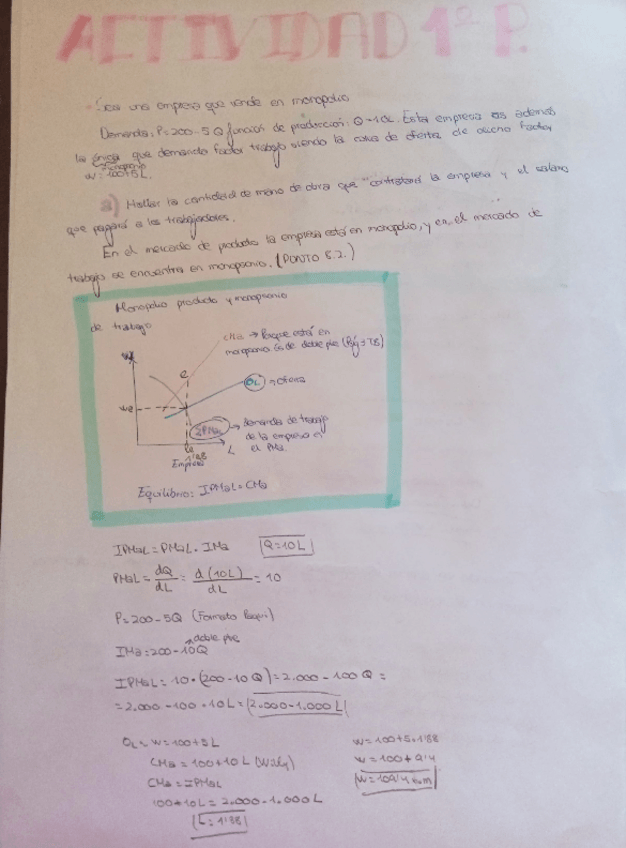 ACTIVIDAD 1º P.
Sea una empresa que vende en monopolio
Demanda: P=200-5Q función de producción: Q=10L. Esta empresa es además
la única que demanda factor trabajo siendo la curva de oferta de dicho factor
monopsonio
w=100+5L.
a) Hallar la cantidad de mano de obra que contratará la empresa y el salario
que pagará a los trabajadores.
En el mercado de producto la empresa está en monopolio, y en el mercado de
trabajo se encuentra en monopsonio. (PUNTO 5.2.)
Monopolio producto y monopsonio
de trabajo
CMa → Porque está en
monopsonio es de doble pte
W
e
OL → Oferta
we
IPMaL → demanda de trabajo
de la empresa
el PMa
Le
L
1'88
Empresa
Equilibrio: IPMaL = CMa
IPMaL = PMaL · IMa Q=10L
PMaL = dQ/dL = d(10L)/dL = 10
P=200-5Q (Formato
doble pte
IMa=200-10Q
IPMaL = 10·(200-10Q) = 2.000-100Q =
= 2.000-100·10L = 2.000-1.000L
OL = w=100+5L
CMa = 100+10L
CMa = IPMaL
100+10L = 2.000-1.000L
L=1'88
w=100+5·1'88
w=100+9'4
w=109'4 u.m